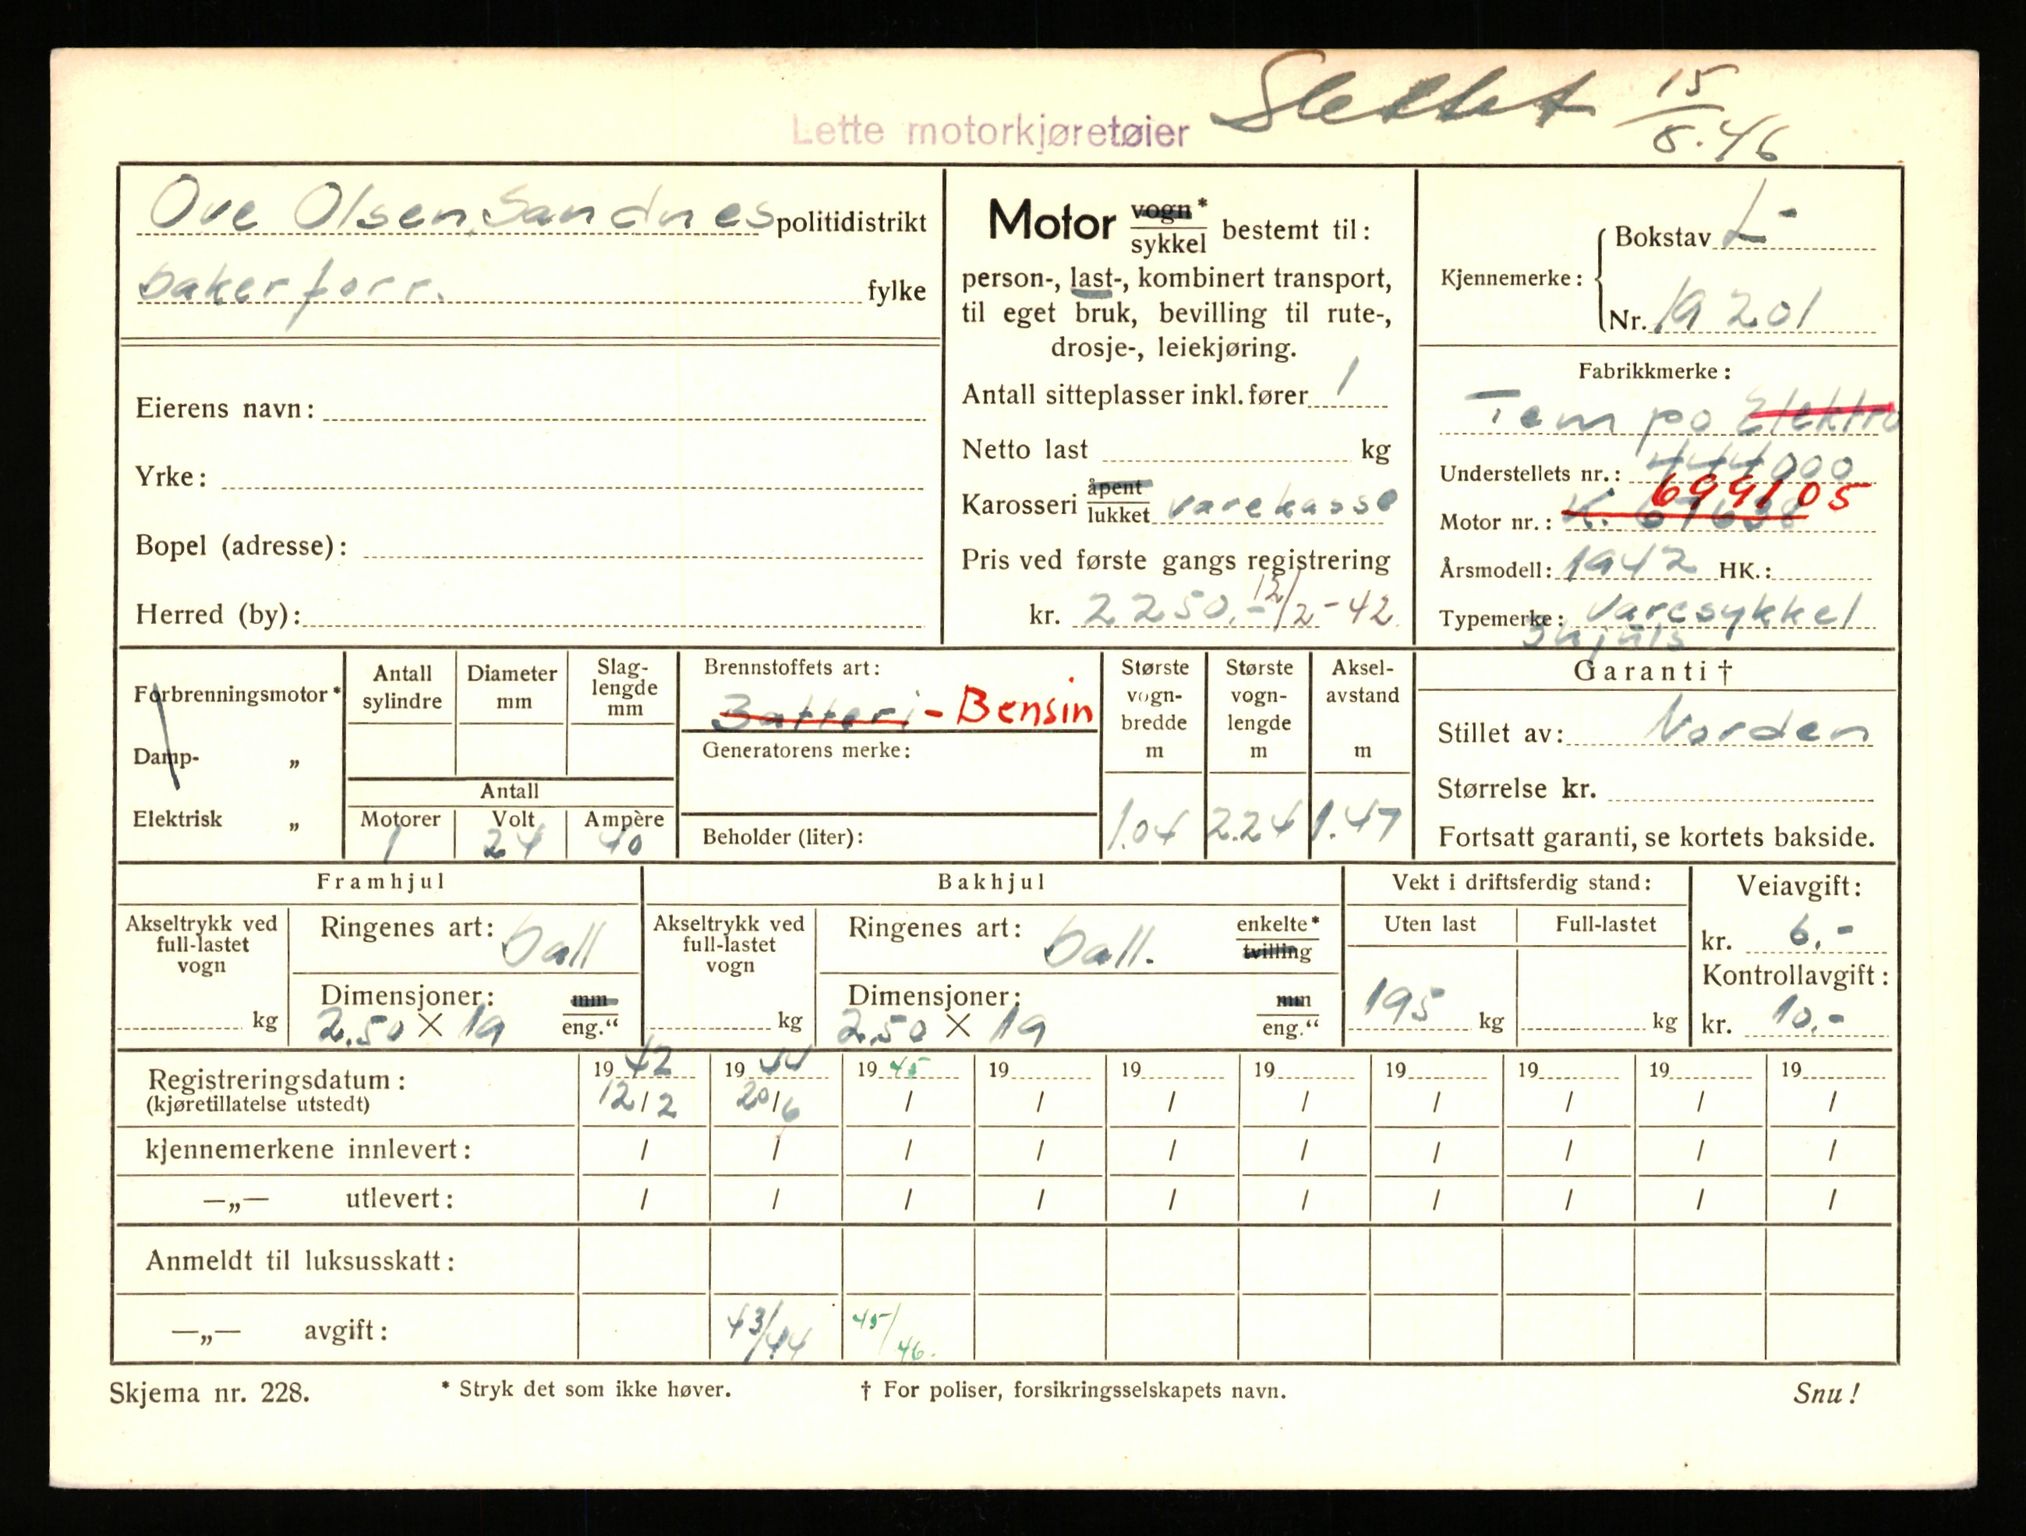 Lette motorkjøretøier Slettet 15/8.46
Ove Olsen, Sandnes politidistrikt
bakerforr. fylke
Eierens navn:
Yrke:
Bopel (adresse):
Herred (by):
Motor vogn* / sykkel bestemt til:
person-, last-, kombinert transport,
til eget bruk, bevilling til rute-,
drosje-, leiekjøring.
Antall sitteplasser inkl. fører 1
Netto last kg
Karosseri åpent / lukket varekasse
Pris ved første gangs registrering
kr. 2250.- 12/2-42
Kjennemerke:
Bokstav L-
Nr. 19201
Fabrikkmerke:
Tempo Elektro
Understellets nr.: 444000
699105
Motor nr.: K. 67638
Årsmodell: 1942 HK.:
Typemerke: varesykkel
3hjuls
Forbrenningsmotor*
Damp- „
Elektrisk „
Antall sylindre
Diameter mm
Slag-lengde mm
Antall
Motorer Volt Ampère
1 24 40
Brennstoffets art:
Batteri - Bensin
Generatorens merke:
Beholder (liter):
Største vogn-bredde m
1.04
Største vogn-lengde m
2.24
Aksel-avstand m
1.47
Garanti †
Stillet av: Norden
Størrelse kr.
Fortsatt garanti, se kortets bakside.
Framhjul
Akseltrykk ved full-lastet vogn
kg
Ringenes art: ball
Dimensjoner: mm / eng.“
2.50 × 19
Bakhjul
Akseltrykk ved full-lastet vogn
kg
Ringenes art: ball. enkelte* / tvilling
Dimensjoner: mm / eng.“
2.50 × 19
Vekt i driftsferdig stand:
Uten last Full-lastet
195 kg kg
Veiavgift:
kr. 6.-
Kontrollavgift:
kr. 10.-
Registreringsdatum: 1942 1944 1945 19 19 19 19 19 19 19
(kjøretillatelse utstedt) 12/2 20/6 / / / / / / / /
kjennemerkene innlevert: / / / / / / / / / /
—„— utlevert: / / / / / / / / / /
Anmeldt til luksusskatt:
—„— avgift: 43/44 45/46.
Skjema nr. 228. * Stryk det som ikke høver. † For poliser, forsikringsselskapets navn. Snu!